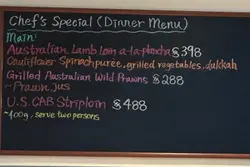 Chef's Special (Dinner Menu)
Main:
Australian Lamb Loin a-la-plancha $398
Cauliflower Spinach purée, grilled vegetables, dukkah
Grilled Australian Wild Prawns $288
~Prawn Jus
U.S. CAB Striploin $488
~400g, serve two persons